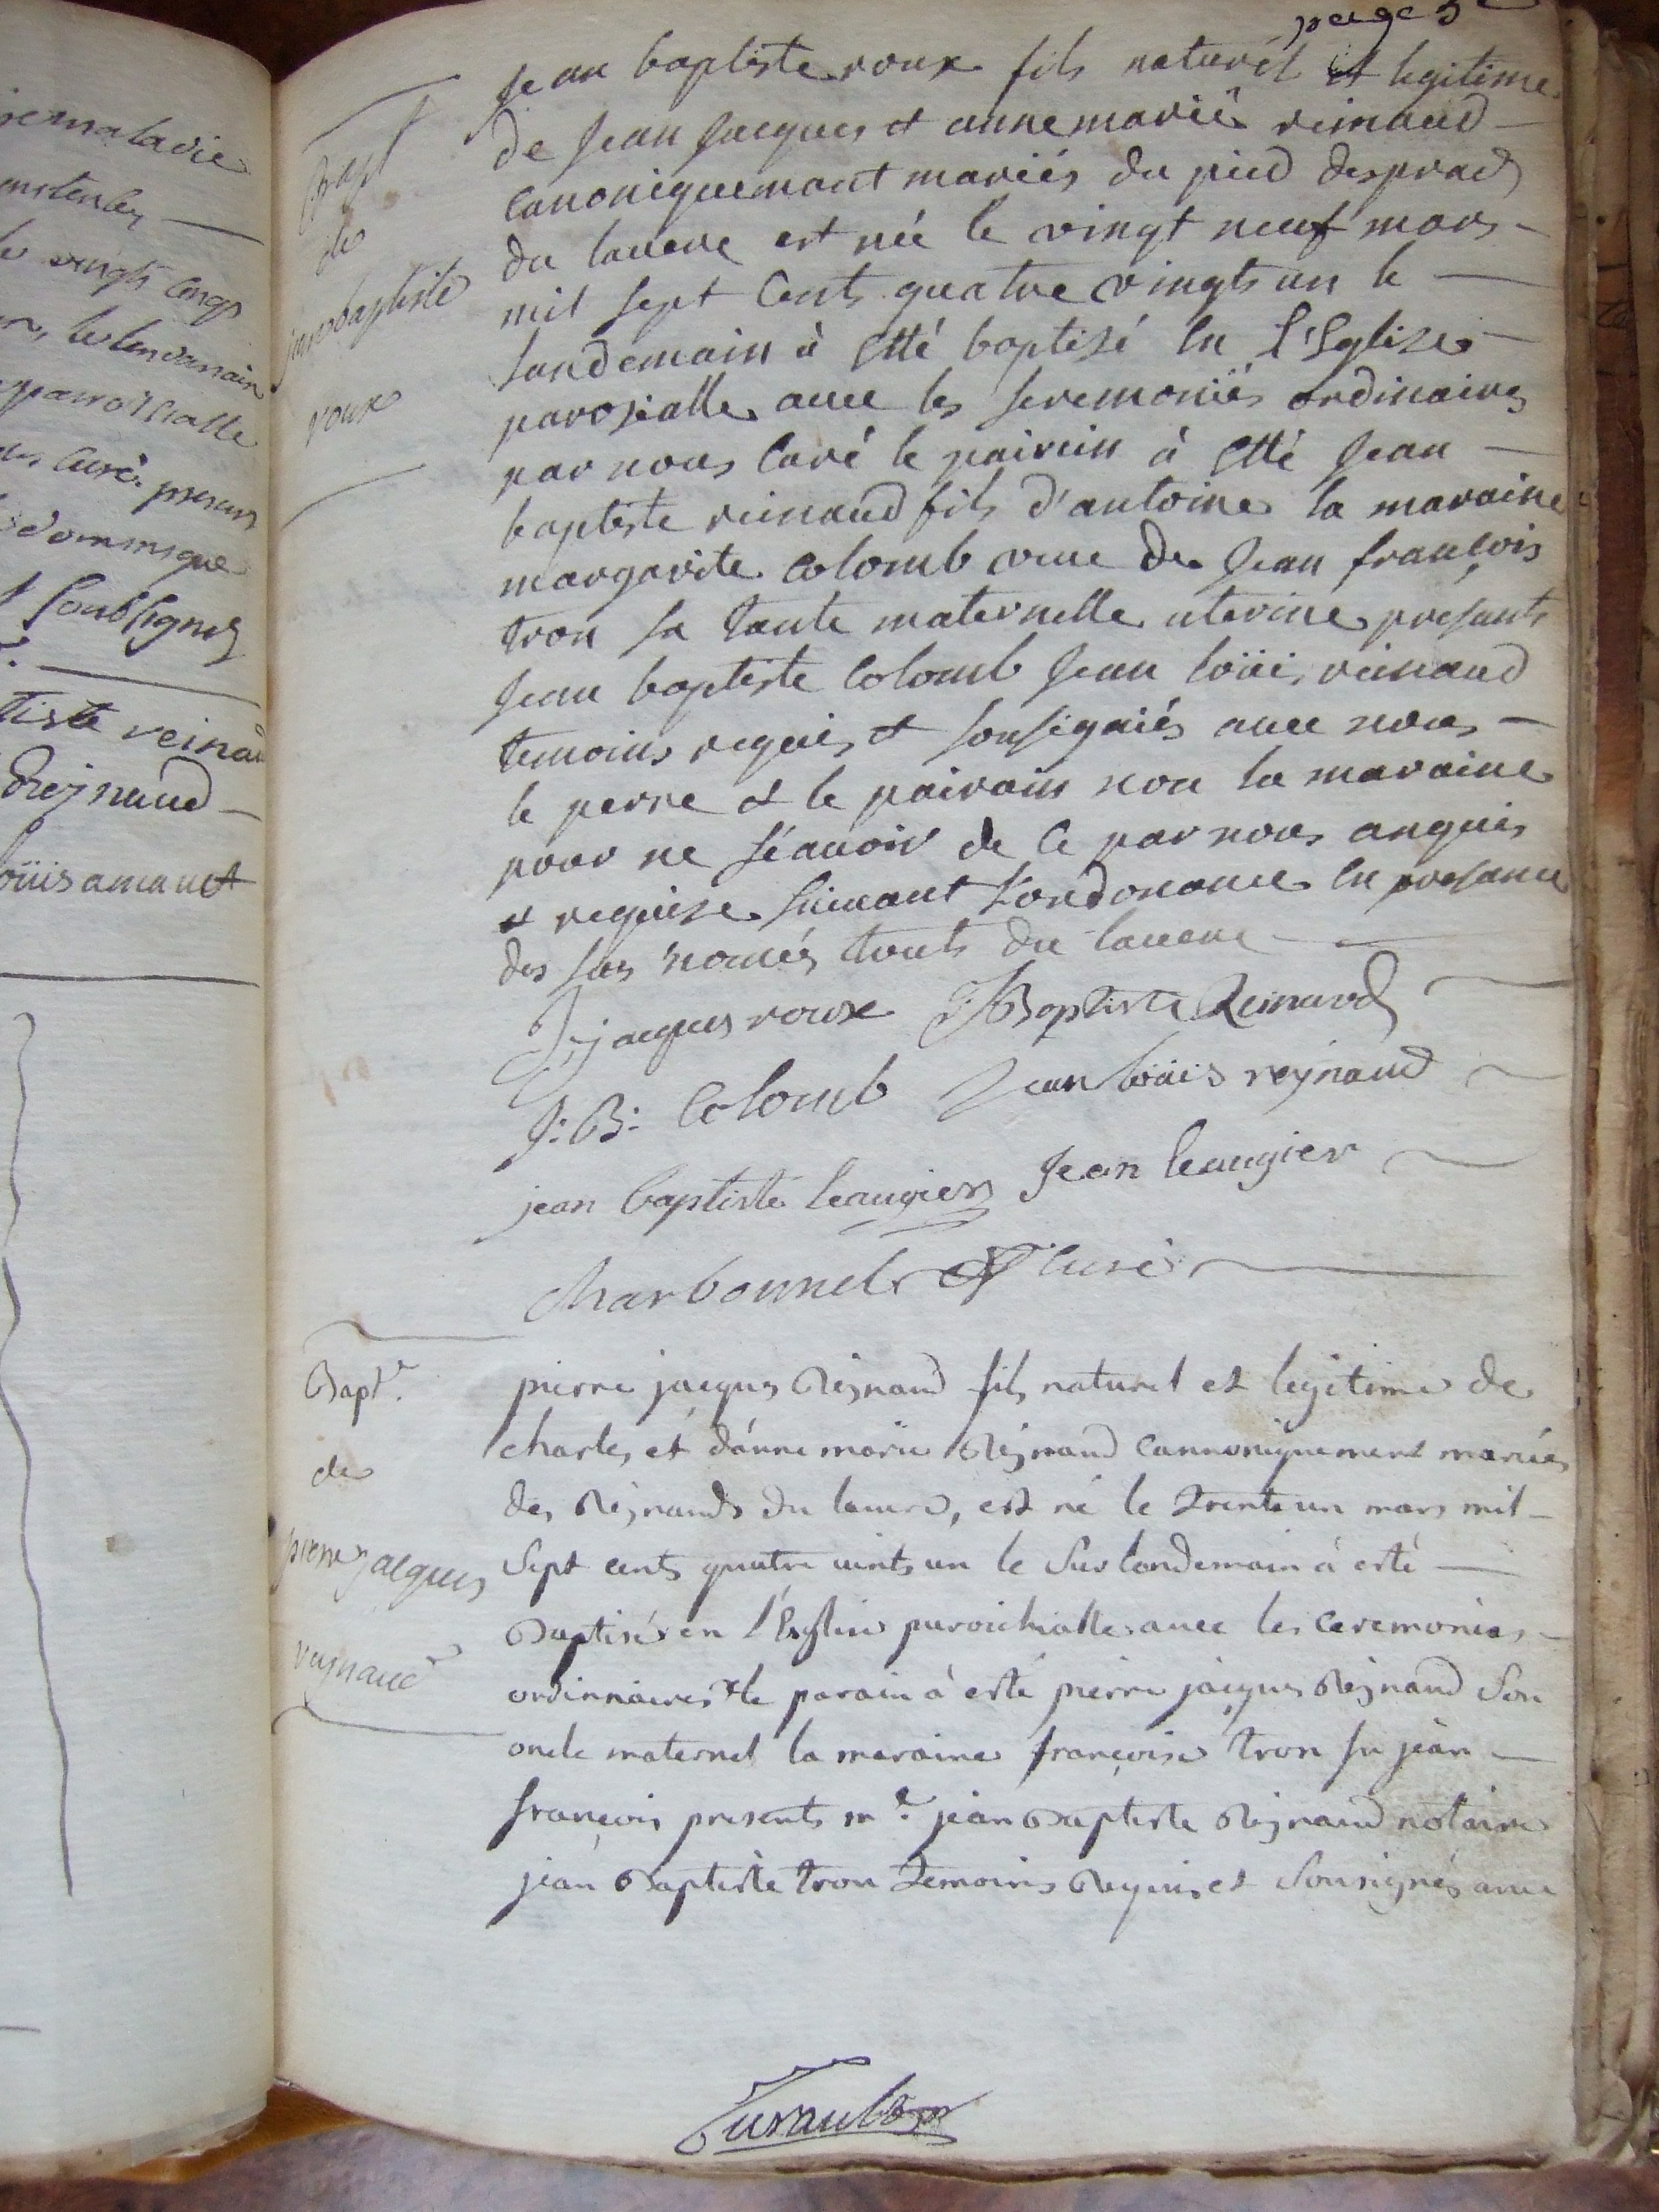 page 5e
Bapt
de
jeanbaptiste
roux
jean baptiste roux fils naturél et legitime
de jean jacques et annemarie reinaud
canoniquemant mariés du pied desprads
du lauere est née le vingt neuf mars
mil sept cents quatre vingts un le
landemain à etté baptisé en l'Eglise
parosialle auec les seremoniës ordinaires
par nous curé le pairein à etté jean
baptiste reinaud fils d'antoine la maraine
margarite colomb veue de jean françois
tron sa tante maternelle uterine presants
jean baptiste colomb jean loüis reinaud
temoins requis et sousigniés auec nous
le perre et le pairain non la maraine
pour ne sçauoir de ce par nous anquis
et requise suiuant l'ordonance en presance
des sus només touts du lauere
J jacques roux J Baptiste Reinaud
J: B: Colomb Jean loüis reynaud
jean baptiste leaugier Jean leaugier
charbonnel curé
Bapt.e
de
pierre jacques
reynaud
pierre jacques Reynaud fils naturel et legitime de
charles et d'anne marie Reynaud cannoniquement mariés
des Reynauds du lauere, est né le trente un mars mil
sept cents quatre vints un le surlandemain à esté
Baptisé en l'Eglise paroichialle auec les ceremonies
ordinnaires le parain à esté pierre jacques Reynaud son
oncle maternel la maraine françoise tron fu jean
françois presents me jean Baptiste Reynaud notaire
jean Baptiste tron temoins Requis et sousignés auec
jemalavie
vingts cinqs
le lendemain
parroissialle
curé presens
dominique
soubsignes
tiste reinau
Reynaud
loüis amauet